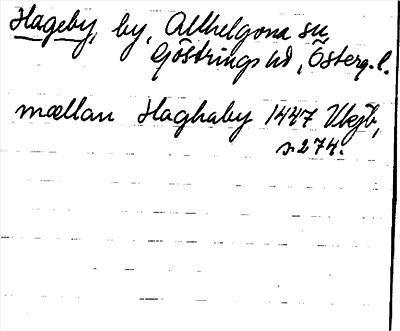 Hageby, by, Allhelgona sn,
Göstrings hd, Österg. l.
mællan Haghaby 1447 Vkjb,
s. 274.